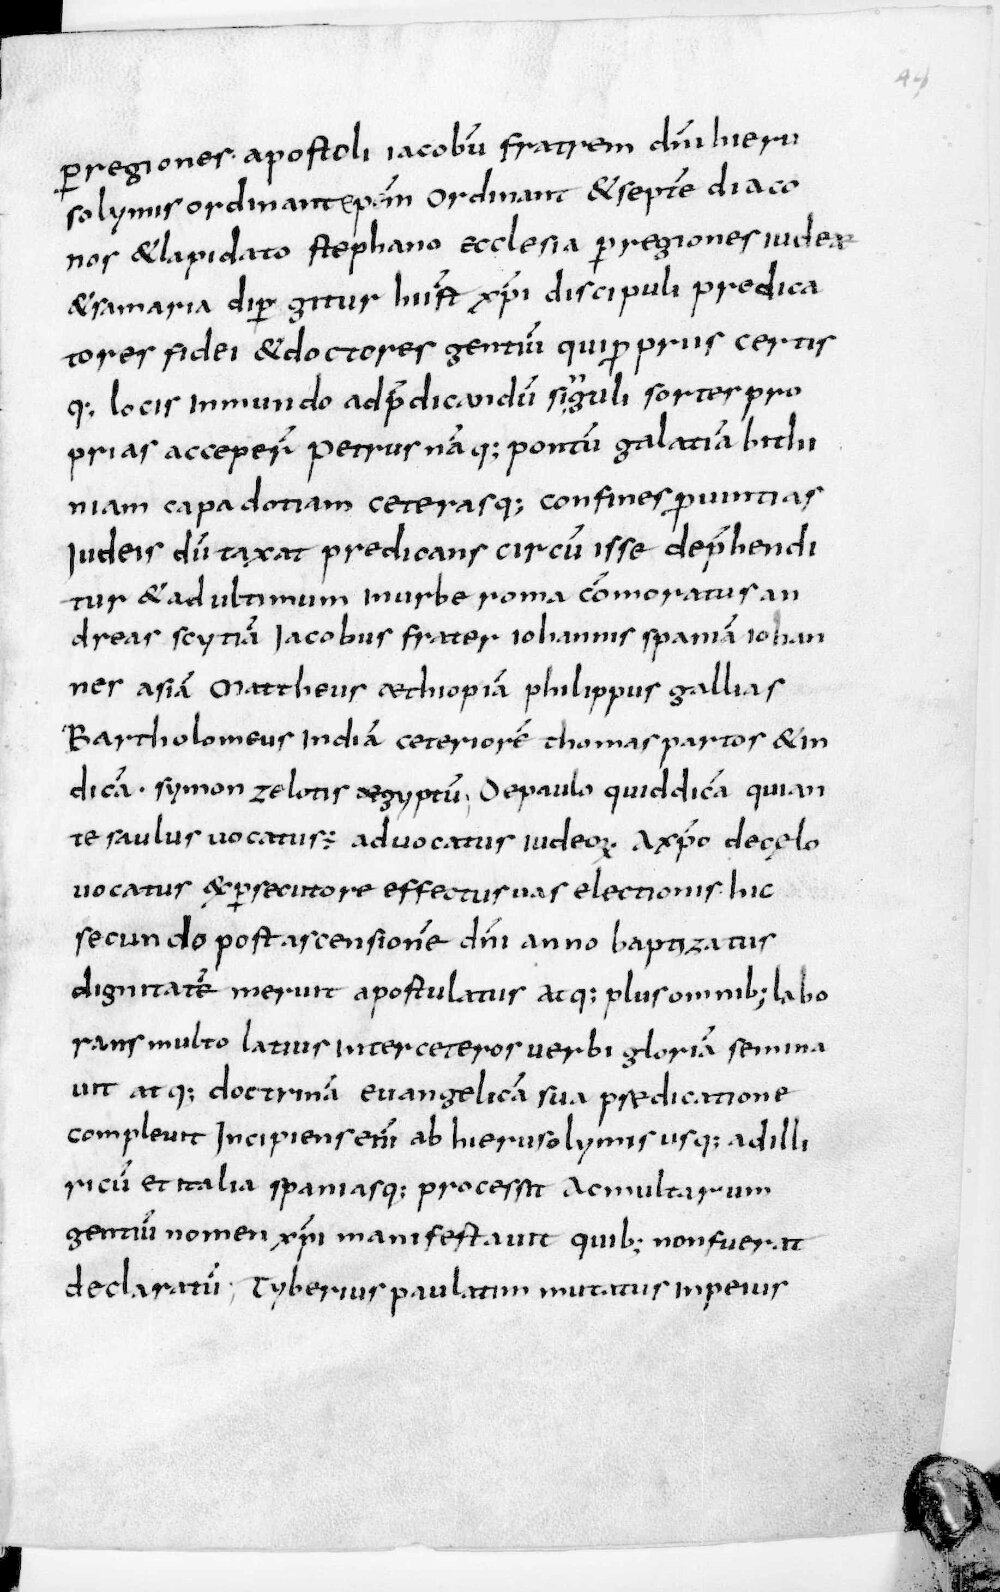 44
ꝑregiones· apostoli iacobū fratrem dn̄i hieru
solymis ordinant ep̄m Ordinant &septē diaco
nos &lapidato stephano ecclesia ꝑregiones iudeæ
&samaria diꝑ gitur hui ÷ xp̄i discipuli predica
tores fidei &doctores gentiū quiꝓprus certis
q; locis inmundo adp̄dicandū siguli sortespro
prias acceper̄ Petrus nāq; pontū galatiā bithi
niam capadotiam ceterasq; confinesꝓuintias
Iudeis dūtaxat predicans circū isse dep̄hendi
tur &adultimum inurbe roma cōmoratus an
dreas scytiā Iacobus frater iohannis spaniā iohan
nes asiā Mattheus æthiopiā philippus gallias
Bartholomeus indiā ceteriorē thomas partos &in
dicā· symon zelotis ægyptū; De paulo quid dicā quian
te saulus uocatus; aduocatus iudeoꝝ· Axp̄o decęlo
uocatus &ꝑsecutore effectus uas electionis· hic
secundo post ascensionē dn̄i anno baptizatus
dignitatē meruit apostulatus atq; plus omnib; labo
rans multo latius inter ceteros uerbi gloriā semina
uit atq; doctrinā euangelicā sua prædicatione
compleuit Incipiens eni̅ ab hierusolymis usq; adilli
ricū et italia spaniasq; processit Ac multarum
gentiū nomen xp̄i manifestauit quib; non fuerat
declaratū; Tyberius paulatim mutatus inpeius